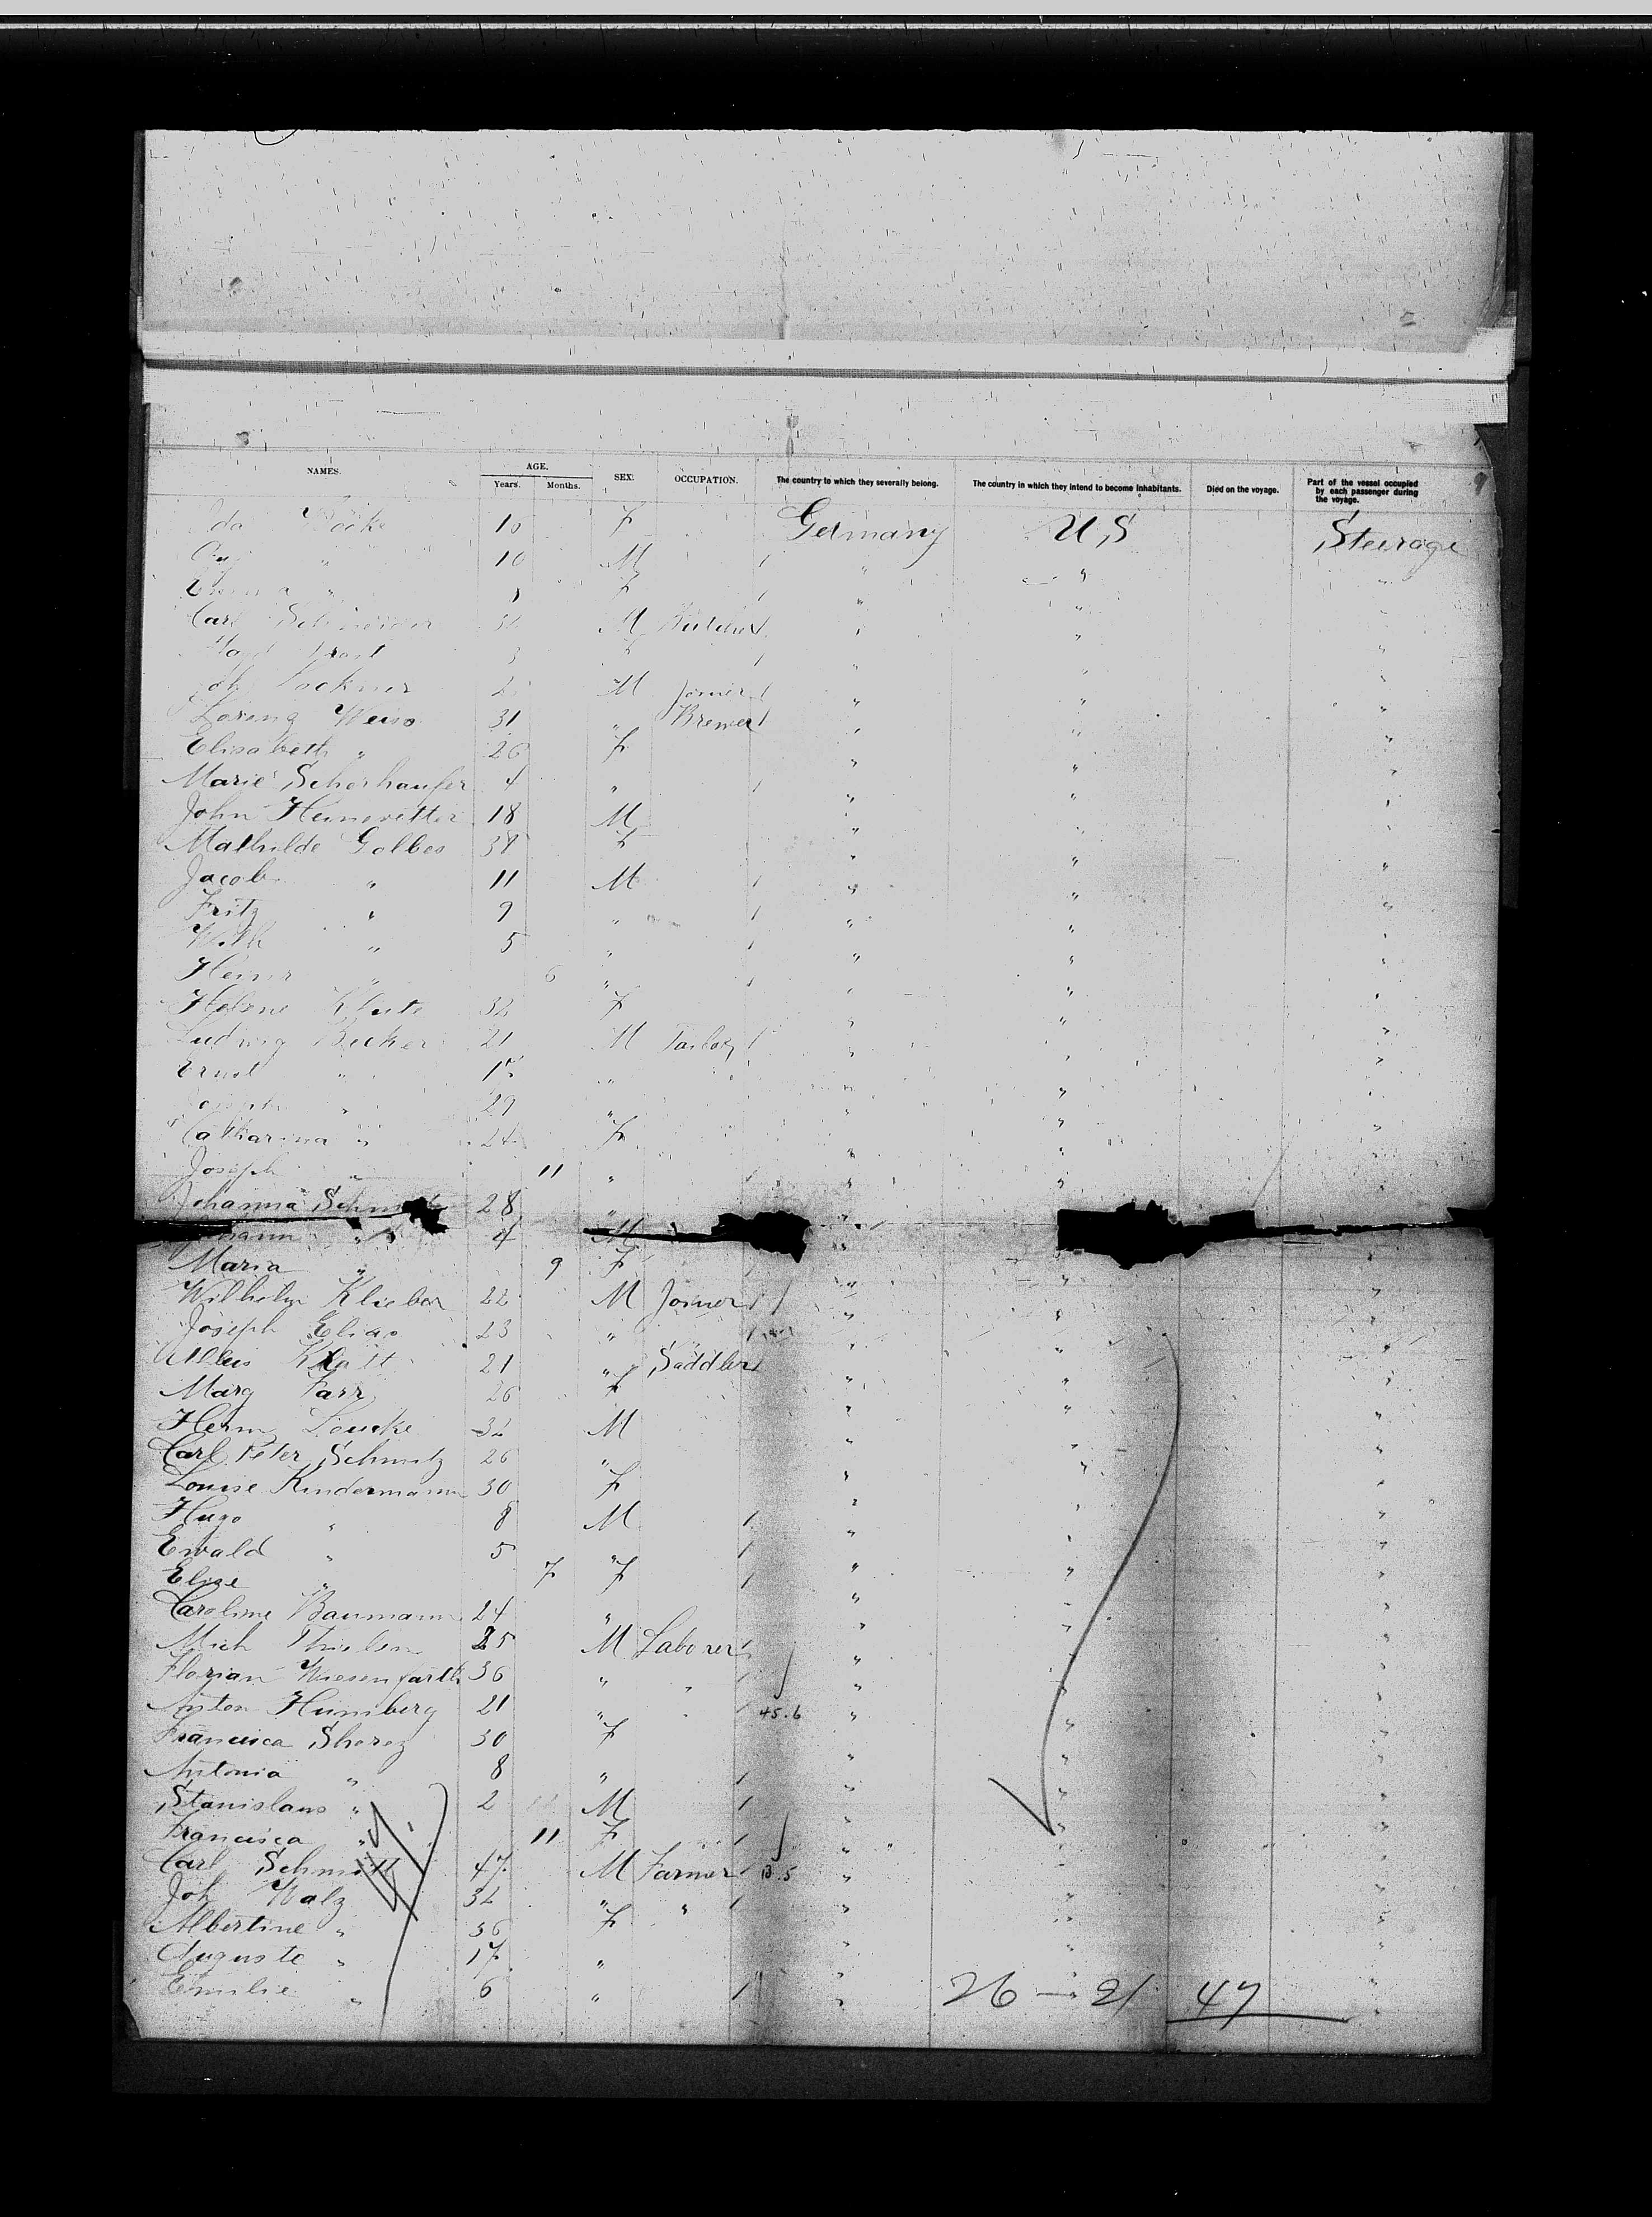 NAMES. AGE. SEX. OCCUPATION. The country to which they severally belong. The country in which they intend to become inhabitants. Died on the voyage. Part of the vessel occupied by each passenger during the voyage.
Years. Months.
10 F Germany U,S Steerage
" 10 M " " "
" F " " "
Carl M Butcher " " "
" " "
M Joiner " " "
Lorenz Weiss 31 " Brewer " " "
Elisabeth " 26 F " " "
Marie Schorhaufer 4 " " " "
John Heinevetter 18 M " " "
Mathilde Golbes 38 F " " "
Jacob " 11 M " " "
Fritz " 9 " " " "
Wilh " 5 " " " "
Heinr " 6 " " " "
Helene Klute 32 F " " "
Ludwig Becker 21 M Tailor " " "
Ernst " " " " "
Joseph " 29 " " " "
Catharina " 24 F " " "
Joseph " 11 " " " "
Johanna 28 " "
" 4 M "
Maria " 9 F " " "
Wilhelm Klieber 22 M Joiner " " "
Joseph Elias 23 " " " "
Klatt 21 " Saddler " " "
Marg Farr 26 F " " "
Herm Loucke 32 M " " "
Carl Peter Schmitz 26 " " " "
Louise Kindermann 30 F " " "
Hugo " 8 M " " "
Ewald " 5 " " " "
Elise " 7 F " " "
Caroline Baumann 24 " " " "
Mich Thielen 25 M Laborer " " "
Florian Wiesengarth 36 " " " " "
Anton Humberg 21 " 45.6 " " "
Francisca Shorez 30 F " " "
Antonia " 8 " " " "
Stanislaus " 2 M " " "
Francisca " 11 F " " "
Carl Schmitt 47 M Farmer 13.5 " " "
Joh Walz 32 " " " " "
Albertine " 36 F " " "
Auguste " 17 " " " "
Emilie " 6 " " 26 — 21 47 "